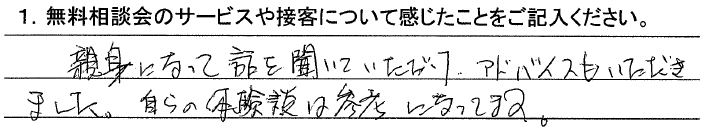 1. 無料相談会のサービスや接客について感じたことをご記入ください。
親身になって話を聞いていただけ、アドバイスもいただき
ました。自らの体験談は参考になってます。